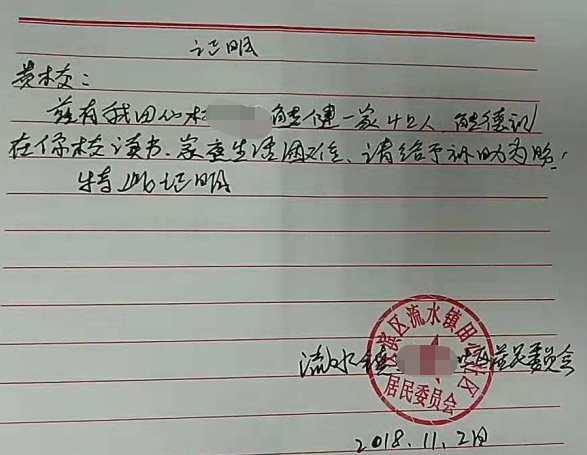 证明
贵校：
兹有我田心村 熊健一家4口人，熊德
在你校读书，家庭生活困难，请给予补助为盼！
特此证明
滨区流水镇田心社区
居民委员会
流水镇 居民委员会
2018.11.2日